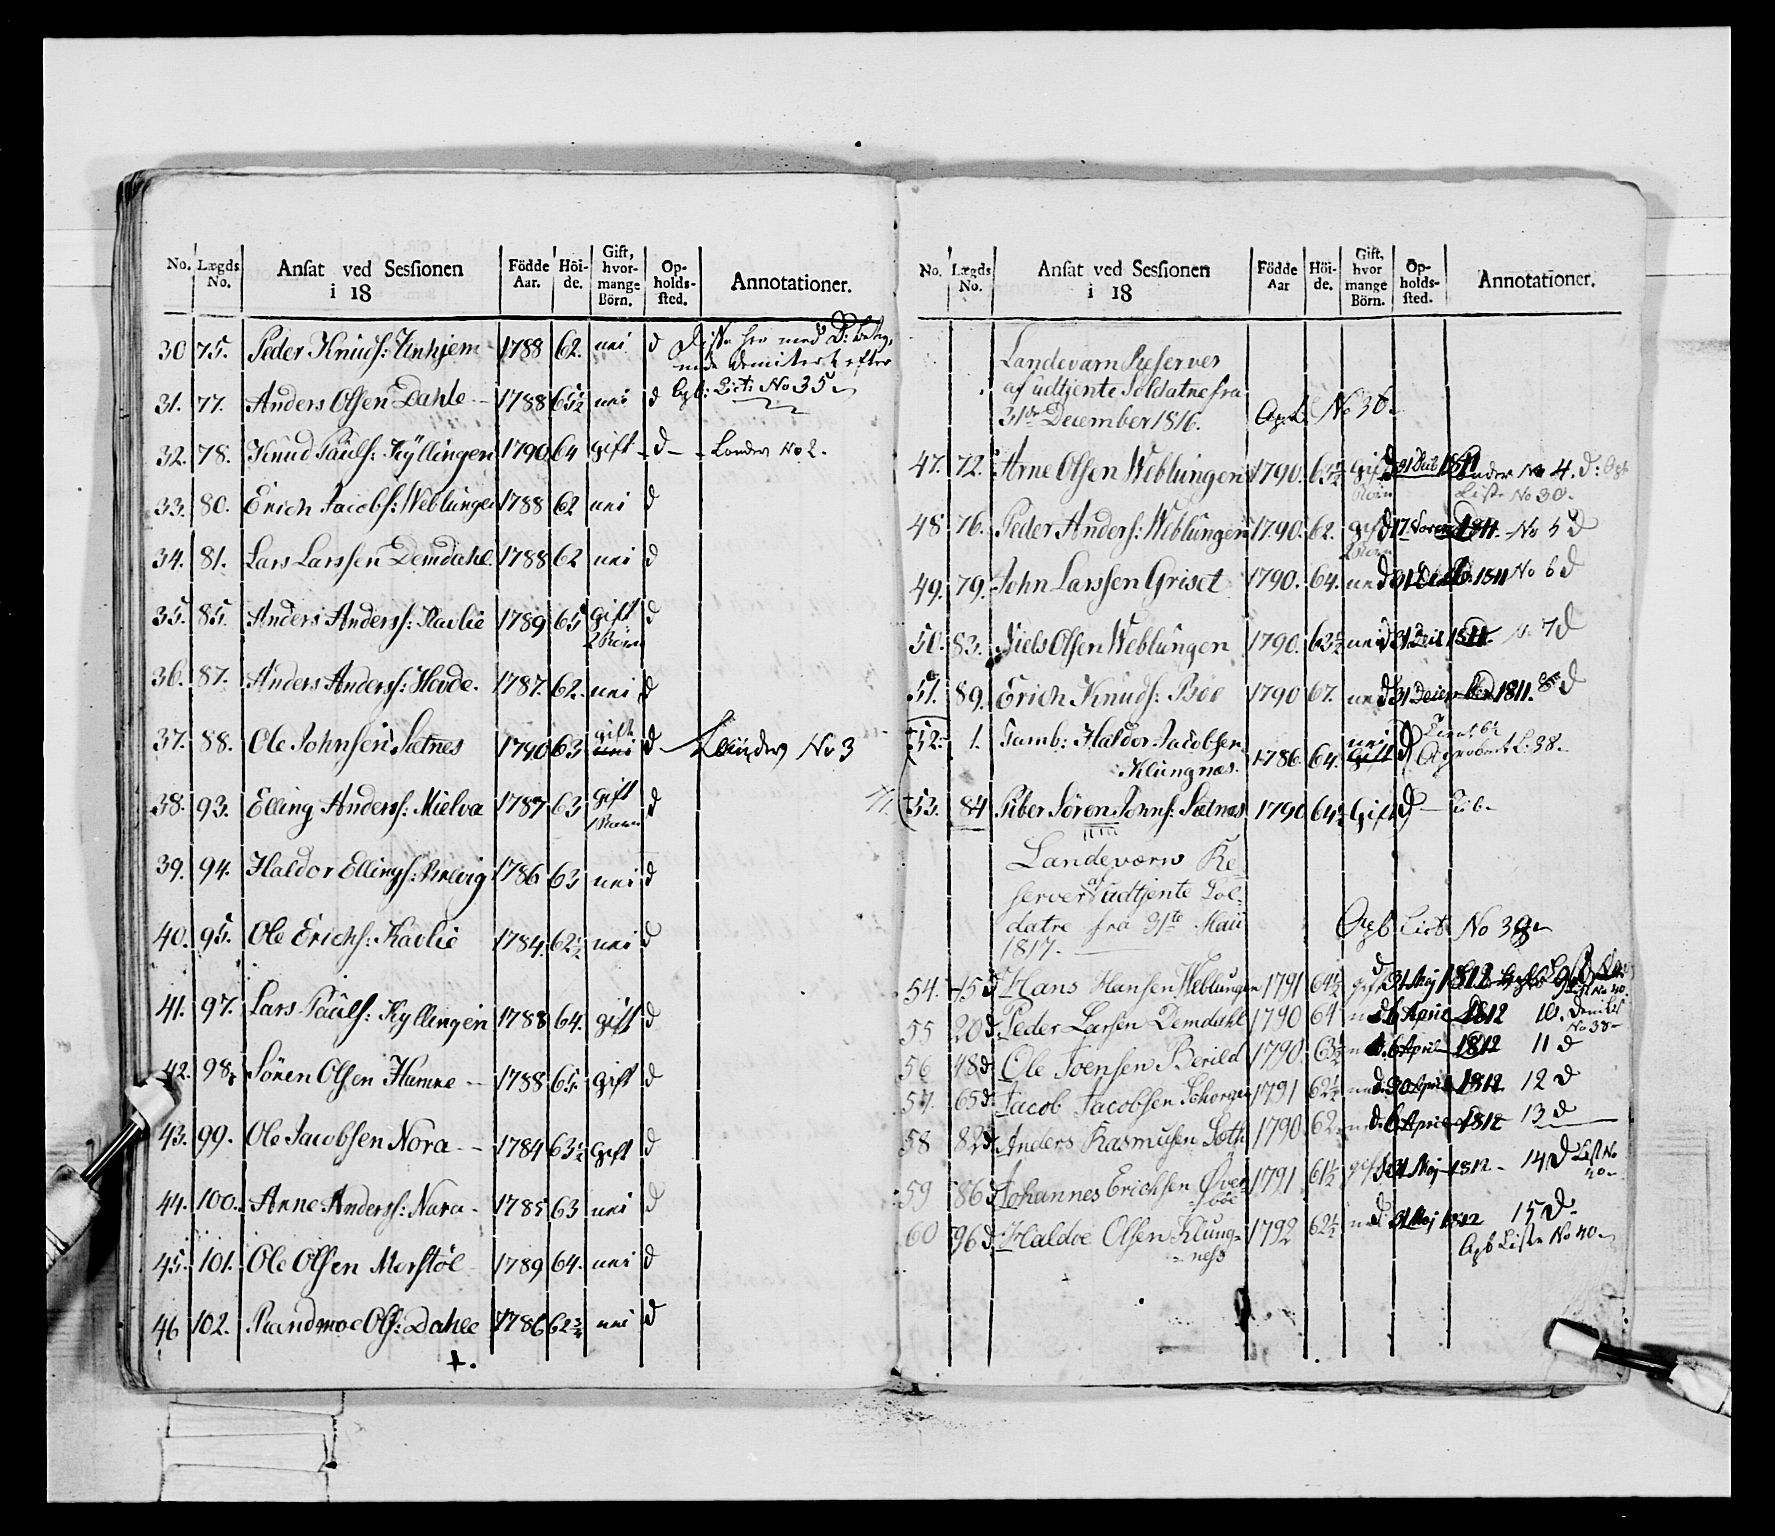 No. Lægds No. Ansat ved Sessionen i 18 Födde Aar. Höi-de. Gift, hvor-mange Börn. Op-holds-sted. Annotationer.
30 75. Peder Knuds: Unhjem 1788 62. uni d Disse her med D: beteg,
nede demitert efter
31. 77. Anders Olsen Dahle 1788 65½ uni d Agb: List: No 35
32. 78. Knud Pauls: Kyllingen 1790 64 gift d Landev No 2.
33. 80. Erich Jacobs: Weblungen 1788 62 uni d
34. 81. Lars Larssen Demdahl 1788 62 uni d
35. 85. Anders Anders: Ravlie 1789 65 gift d
2 Börn
36. 87. Anders Anders: Hovde. 1787. 62. uni d
gift
37. 88. Ole Johnsen Sætnes 1790 63 uni d Landev No 3
38. 93. Elling Anders: Mielva 1787 63 gift d
1 Barn
39. 94. Haldor Ellings: Brevig 1786 63 uni d
40. 95. Ole Erichs: Kavlie 1784. 62½ uni d
41. 97. Lars Pauls: Kyllingen 1788 64. gift d
42. 98. Sören Olsen Hamre 1788 65. gift d
43. 99. Ole Jacobsen Nora 1784 63½ gift d
44. 100. Arne Anders: Nora 1785 63 uni d
45. 101. Ole Olsen Morstöl 1789 64. uni d
46 102. Randmoe Ols: Dahle 1786 62¾ uni d
No. Lægds No. Ansat ved Sessionen i 18 Födde Aar Höi-de. Gift, hvor mange Börn. Op-holds-sted. Annotationer.
Landevarn Reserver
af udtjente Soldatne fra
31te December 1816. Agb. L. No 36
47. 72. Arne Olsen Weblungen 1790. 63½ gift d 31 1811 Landev No 4. d: Agb
Liste No 30.
48 76. Peder Anders: Weblungen 1790. 62. gift d 17 1811. No 5 d
49. 79. John Larssen Griset 1790. 64. uni d 31 1811 No 6 d
50. 83. Niels Olsen Weblungen 1790. 63½ uni d 31 1811 No 7 d
51. 89. Erich Knuds: Böe 1790 67. uni d 31 December 1811. 8 d
52. 1. Tamb: Haldor Jacobsen
Klungnæs. 1786. 64. uni gift d L: 38.
53. 84 Piber Sören Johns: Sætnæs 1790 64½ Gift d
Landeværns Re-
server af udtjente Sol-
datre fra 31te Maii
1817. Agb List No 39
54. 15 d Hans Hansen Weblungen 1791 64½ gift d 31 Maj 1812 9 No 40
55 20 d. Peder Larsen Demdahl 1790 64 d. 6 April 1812 10.
No 38
56 48 d Ole Joensen Berild 1790 63½ d. 6 April 1812 11 d
57. 65 d. Jacob Jacobsen 1791 62½ d. 30 April 1812. 12 d
58 82 d. Anders Rasmusen Sæth 1790 62 d. 6 April 1812 13 d
59 86 d Johannes Erichsen Över-
vöe 1791 61½ gift d 31 Maj 1812 14 d List No
40
60 96 d. Haldoe Olsen Klung-
næss 1792 62½ d 31 Maj 1812 15 d
Agb Liste No 40